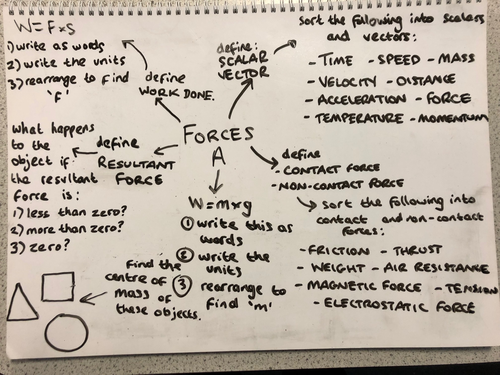 W=F×S
1) write as words
2) write the units
3) rearrange to find
'F'
define
WORK DONE.
define:
SCALAR
VECTOR
Sort the following into scalars
and vectors:
- TIME - SPEED - MASS
- VELOCITY - DISTANCE
- ACCELERATION - FORCE
- TEMPERATURE - MOMENTUM
FORCES
A
What happens
to the
object if
the resultant
force is:
1) less than zero?
2) more than zero?
3) zero?
define
RESULTANT
FORCE
define
- CONTACT FORCE
- NON-CONTACT FORCE
Sort the following into
contact and non-contact
forces:
- FRICTION - THRUST
- WEIGHT - AIR RESISTANCE
- MAGNETIC FORCE - TENSION
- ELECTROSTATIC FORCE
W=m×g
① write this as
words
② write the
units
③ rearrange to
find 'm'
Find the
centre of
mass of
these objects.